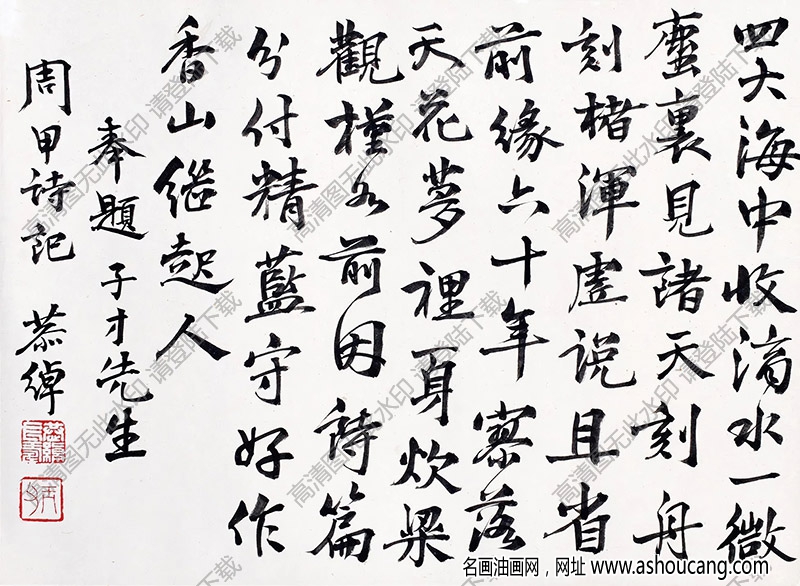 四大海中收滴水一微
塵裏見諸天刻舟
刻楮渾虛説且省
前緣六十年寥落
天花夢裡身炊梁
觀種々前因詩篇
分付精藍守好作
香山繼起人
奉題 子才先生
周甲诗記 恭綽
高清图无此水印 请登陆下载
名画油画网，网址 www.ashoucang.com